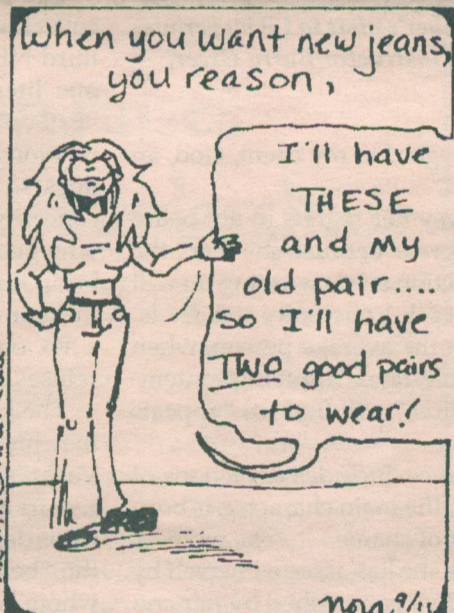 When you want new jeans,
you reason,
I'll have
THESE
and my
old pair...
so I'll have
TWO good pairs
to wear!
nora 9/11